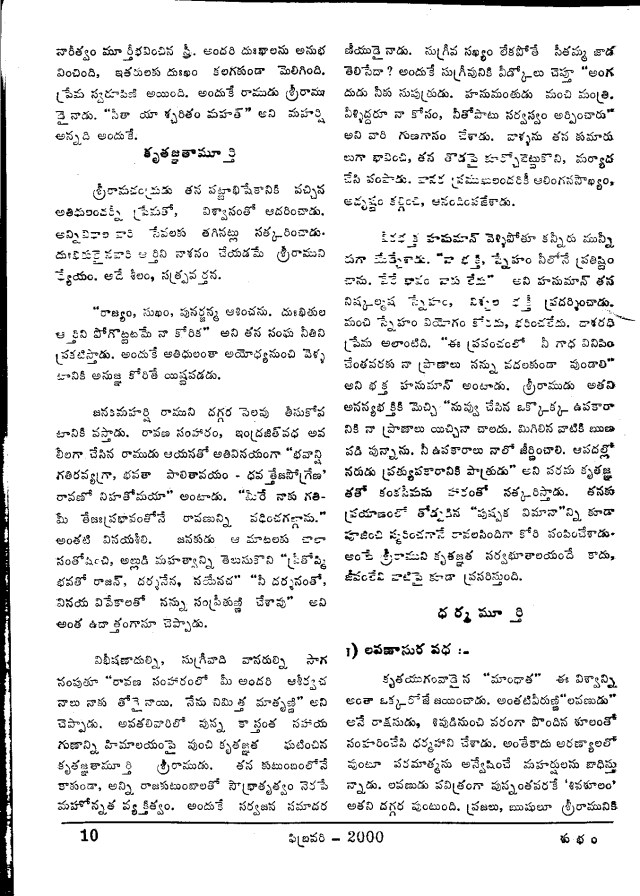 నారీత్వం మూర్తీభవించిన స్త్రీ. అందరి దుఃఖాలను అనుభ
వించింది, ఇతరులకు దుఃఖం కలగకుండా మెలిగింది.
ప్రేమ స్వరూపిణి అయింది. అందుకే రాముడు శ్రీరాము
డైనాడు. "సీతా యా శ్చరితం మహత్" అని మహర్షి
అన్నది అందుకే.
కృతజ్ఞతామూర్తి
శ్రీరామచంద్రుడు తన పట్టాభిషేకానికి వచ్చిన
అతిథులందర్నీ ప్రేమతో, విశ్వాసంతో ఆదరించాడు.
అన్నివిధాల వారి సేవలకు తగినట్లు సత్కరించాడు.
దుఃఖితులైనవారి ఆర్తిని నాశనం చేయడమే శ్రీరాముని
ధ్యేయం. అదే శీలం, సత్ప్రవర్తన.
"రాజ్యం, సుఖం, పునర్జన్మ ఆశించను. దుఃఖితుల
ఆర్తిని పోగొట్టటమే నా కోరిక" అని తన సంఘ నీతిని
ప్రకటిస్తాడు. అందుకే అతిథులంతా అయోధ్యనుంచి వెళ్ళ
టానికి అనుజ్ఞ కోరితే యిష్టపడడు.
జనకమహర్షి రాముని దగ్గర సెలవు తీసుకోవ
టానికి వస్తాడు. రావణ సంహారం, ఇంద్రజిత్‌వధ అవ
లీలగా చేసిన రాముడు ఆయనతో అతివినయంగా "భవాన్హి
గతిరవ్యగ్రా, భవతా పాలితావయం - భవ త్తేజసోగ్రేణ'
రావణో నిహతోమయా" అంటాడు. "మీరే నాకు గతి-
మీ తేజఃప్రభావంతోనే రావణున్ని వధించగల్గాను."
అంతటి వినయశీలి. జనకుడు ఆ మాటలకు చాలా
సంతోషించి, అల్లుడి మహత్వాన్ని తెలుసుకొని "ప్రీతోస్మి
భవతో రాజన్, దర్శనేన, నయేనచ" "నీ దర్శనంతో,
వినయ వివేకాలతో నన్ను సంప్రీతుణ్ణి చేశావు" అని
అంత ఉదాత్తంగానూ చెప్పాడు.
విభీషణాదుల్ని, సుగ్రీవాది వానరుల్ని సాగ
నంపుతూ "రావణ సంహారంలో మీ అందరి ఆశీర్వచ
నాలు నాకు తోడైనాయి. నేను నిమిత్త మాతృణ్ణి" అని
చెప్పాడు. అవతలివారిలో వున్న కాస్తంత సహాయ
గుణాన్ని హిమాలయంపై వుంచి కృతజ్ఞత ఘటించిన
కృతజ్ఞతామూర్తి శ్రీరాముడు. తన కుటుంబంలోనే
కాకుండా, అన్ని రాజకుటుంబాలతో సౌభ్రాతృత్వం నెరపే
మహోన్నత వ్యక్తిత్వం. అందుకే సర్వజన సమాదర
ణీయుడైనాడు. సుగ్రీవ సఖ్యం లేకపోతే సీతమ్మ జాడ
తెలిసేదా ? అందుకే సుగ్రీవునికి వీడ్కోలు చెప్తూ "అంగ
దుడు నీకు సుపుత్రుడు. హనుమంతుడు మంచి మంత్రి.
వీళ్ళిద్దరూ నా కోసం, నీతోపాటు సర్వస్వం అర్పించారు"
అని వారి గుణగానం చేశాడు. వాళ్ళను తన కుమారు
లుగా భావించి, తన తొడపై కూర్చోబెట్టుకొని, మర్యాద
చేసి పంపాడు. వానర ప్రముఖులందరికీ ఆలింగనసౌఖ్యం,
అదృష్టం కల్గించి, ఆనందింపజేశాడు.
హనుమాన్ వెళ్ళిపోతూ కన్నీరు మున్నీ
రుగా "నా భక్తి, స్నేహం నీలోనే ప్రతిష్టిం
చాను. వేరే భావం నాకు లేదు" అని హనుమాన్ తన
నిష్కల్మష స్నేహం, నిశ్చల భక్తి ప్రదర్శించాడు.
మంచి స్నేహం వియోగం కోరదు, భరించలేదు. దాశరథి
ప్రేమ అలాంటిది. "ఈ ప్రపంచంలో నీ గాథ వినిపిం
చేంతవరకు నా ప్రాణాలు నన్ను వదలకుండా వుండాలి"
అని భక్త హనుమాన్ అంటాడు. శ్రీరాముడు అతని
అనన్యభక్తికి మెచ్చి "నువ్వు చేసిన ఒక్కొక్క ఉపకారా
నికి నా ప్రాణాలు యిచ్చినా చాలదు. మిగిలిన వాటికి ఋణ
పడి వున్నాను. నీ ఉపకారాలు నాలో జీర్ణించాలి. ఆపదల్లో
నరుడు ప్రత్యుపకారానికి పాత్రుడు" అని పరమ కృతజ్ఞ
తతో కంఠసీమను హారంతో సత్కరిస్తాడు. తనకు
ప్రయాణంలో తోడ్పడిన "పుష్పక విమానా"న్ని కూడా
పూజించి స్మరించగానే రావలసిందిగా కోరి పంపించేశాడు-
అంటే శ్రీరాముని కృతజ్ఞత సర్వభూతాలయందే కాదు,
జీవంలేని వాటిపై కూడా ప్రసరిస్తుంది.
ధర్మమూర్తి
1) లవణాసుర వధ :-
కృతయుగంవాడైన "మాంధాత" ఈ విశ్వాన్ని
అంతా ఒక్కరోజే జయించాడు. అంతటివీరుణ్ణి "లవణుడు"
అనే రాక్షసుడు, శివుడినుంచి వరంగా పొందిన శూలంతో
సంహరించేసి ధర్మహాని చేశాడు. అంతేకాదు అరణ్యాలలో
వుంటూ పరమాత్మను అన్వేషించే మహర్షులను బాధిస్తు
న్నాడు. లవణుడు పవిత్రంగా వున్నంతవరకే 'శివశూలం'
అతని దగ్గర వుంటుంది. ప్రజలు, ఋషులూ శ్రీరామునికి
10
ఫిబ్రవరి - 2000
శుభం